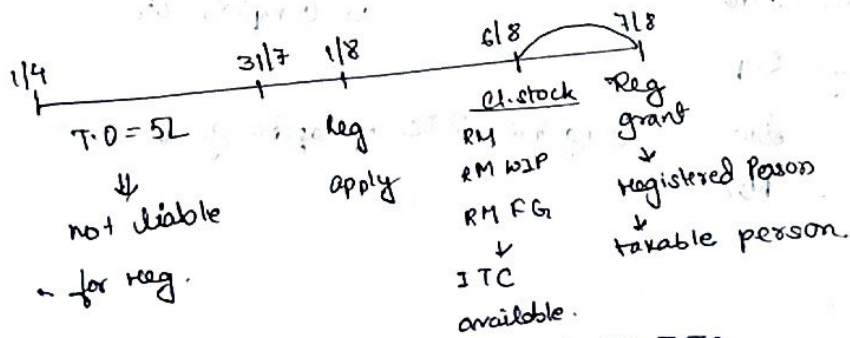 1/4
31/7
1/8
6/8
7/8
T.O = 5L
not liable
for reg.
Reg
apply
Cl.stock
RM
RM WIP
RM FG
ITC
available.
Reg
grant
registered Person
taxable person.